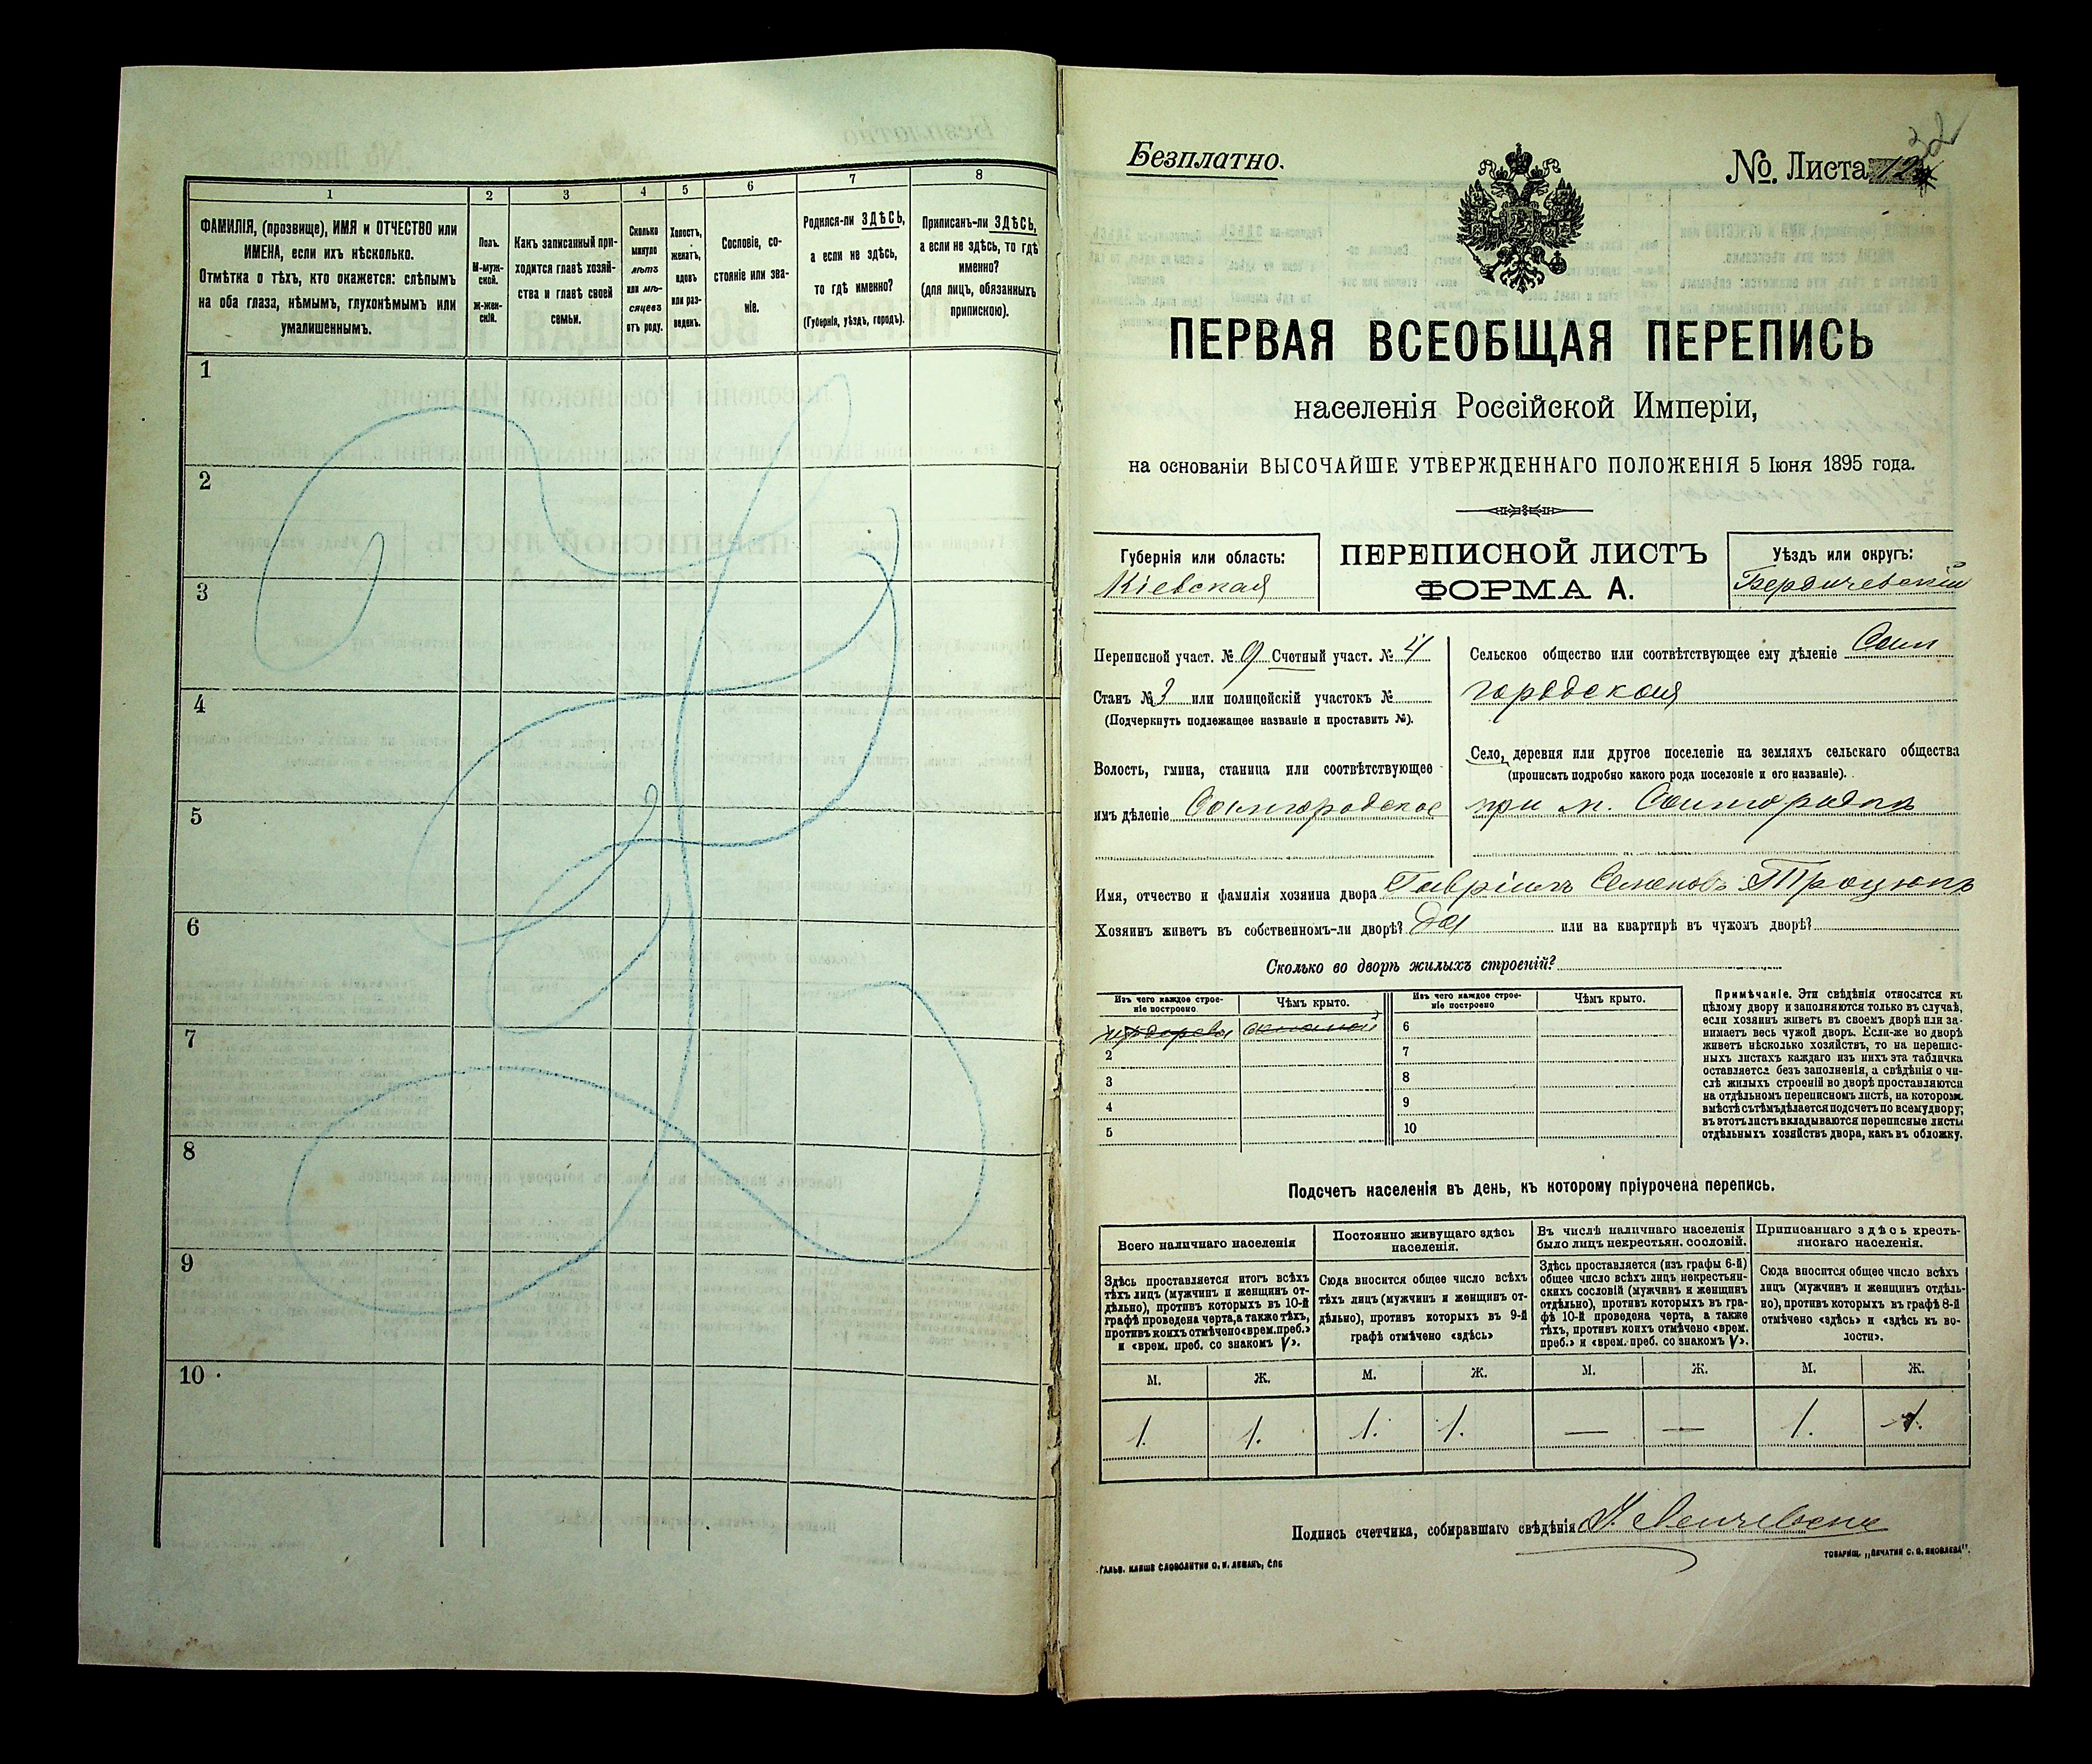 1
2
3
4
5
6
7
8
ФАМИЛІЯ, (прозвище), ИМЯ и ОТЧЕСТВО или
ИМЕНА, если ихъ нѣсколько.
Отмѣтка о тѣхъ, кто окажется: слѣпымъ
на оба глаза, нѣмымъ, глухонѣмымъ или
умалишеннымъ.
Полъ.
М-муж-
ской.
ж-жен-
скій.
Какъ записанный при-
ходится главѣ хозяй-
ства и главѣ своей
семьи.
Сколько
минуло
лѣтъ
или мѣ-
сяцевъ
отъ роду.
Холостъ,
женатъ,
вдовъ
или раз-
веденъ.
Сословіе, со-
стояніе или зва-
ніе.
Родился-ли ЗДѢСЬ,
а если не здѣсь,
то гдѣ именно?
(Губернія, уѣздъ, городъ).
Приписанъ-ли ЗДѢСЬ,
а если не здѣсь, то гдѣ
именно?
(для лицъ, обязанныхъ
припискою).
1
2
3
4
5
6
7
8
9
10
Безплатно.
№. Листа 12
32
ПЕРВАЯ ВСЕОБЩАЯ ПЕРЕПИСЬ
населенія Россійской Имперіи,
на основаніи ВЫСОЧАЙШЕ УТВЕРЖДЕННАГО ПОЛОЖЕНІЯ 5 Іюня 1895 года.
Губернія или область:
Кіевская
ПЕРЕПИСНОЙ ЛИСТЪ
ФОРМА А.
Уѣздъ или округъ:
Бердичевскій
Переписной участ. № 9 Счетный участ. № 4
Станъ № 3 или полицейскій участокъ №
(Подчеркнуть подлежащее названіе и проставить №).
Волость, гмина, станица или соотвѣтствующее
имъ дѣленіе Самгородское
Сельское общество или соотвѣтствующее ему дѣленіе Сам
городская
Село, деревня или другое поселеніе на земляхъ сельскаго общества
(прописать подробно какого рода поселеніе и его названіе).
при м. Самгородкъ
Имя, отчество и фамилія хозяина двора Гавріилъ Семеновъ Троцюкъ
Хозяинъ живетъ въ собственномъ-ли дворѣ? да или на квартирѣ въ чужомъ дворѣ?
Сколько во дворѣ жилыхъ строеній?
Изъ чего каждое строе-
ніе построено
Чѣмъ крыто.
Изъ чего каждое строе-
ніе построено
Чѣмъ крыто.
2
3
4
5
6
7
8
9
10
Примѣчаніе. Эти свѣдѣнія относятся къ
цѣлому двору и заполняются только въ случаѣ,
если хозяинъ живетъ въ своемъ дворѣ или за-
нимаетъ весь чужой дворъ. Если-же во дворѣ
живетъ нѣсколько хозяйствъ, то на перепис-
ныхъ листахъ каждаго изъ нихъ эта табличка
оставляется безъ заполненія, а свѣдѣнія о чи-
слѣ жилыхъ строеній во дворѣ проставляются
на отдѣльномъ переписномъ листѣ, на которомъ
вмѣстѣ съ тѣмъ дѣлается подсчетъ по всему двору;
въ этотъ листъ вкладываются переписные листы
отдѣльныхъ хозяйствъ двора, какъ въ обложку.
Подсчетъ населенія въ день, къ которому пріурочена перепись.
Всего наличнаго населенія
Постоянно живущаго здѣсь
населенія.
Въ числѣ наличнаго населенія
было лицъ некрестьян. сословій.
Приписаннаго здѣсь кресть-
янскаго населенія.
Здѣсь проставляется итогъ всѣхъ
тѣхъ лицъ (мужчинъ и женщинъ от-
дѣльно), противъ которыхъ въ 10-й
графѣ проведена черта, а также тѣхъ,
противъ коихъ отмѣчено «врем. преб.»
и «врем. преб. со знакомъ V».
Сюда вносится общее число всѣхъ
тѣхъ лицъ (мужчинъ и женщинъ от-
дѣльно), противъ которыхъ въ 9-й
графѣ отмѣчено «здѣсь»
Здѣсь проставляется (изъ графы 6-й)
общее число всѣхъ лицъ некрестьян-
скихъ сословій (мужчинъ и женщинъ
отдѣльно), противъ которыхъ въ гра-
фѣ 10-й проведена черта, а также
тѣхъ, противъ коихъ отмѣчено «врем.
преб.» и «врем. преб. со знакомъ V».
Сюда вносится общее число всѣхъ
лицъ (мужчинъ и женщинъ отдѣль-
но), противъ которыхъ въ графѣ 8-й
отмѣчено «здѣсь» и «здѣсь къ во-
лости».
М. Ж. М. Ж. М. Ж. М. Ж.
1. 1. 1. 1. — — 1. 1.
Подпись счетчика, собиравшаго свѣдѣнія
ГАЛЬВ. КЛИШЕ СЛОВОЛИТНИ О. И. ЛЕМАНЪ, СПБ
ТОВАРИЩ. „ПЕЧАТНИ С. П. ЯКОВЛЕВА".